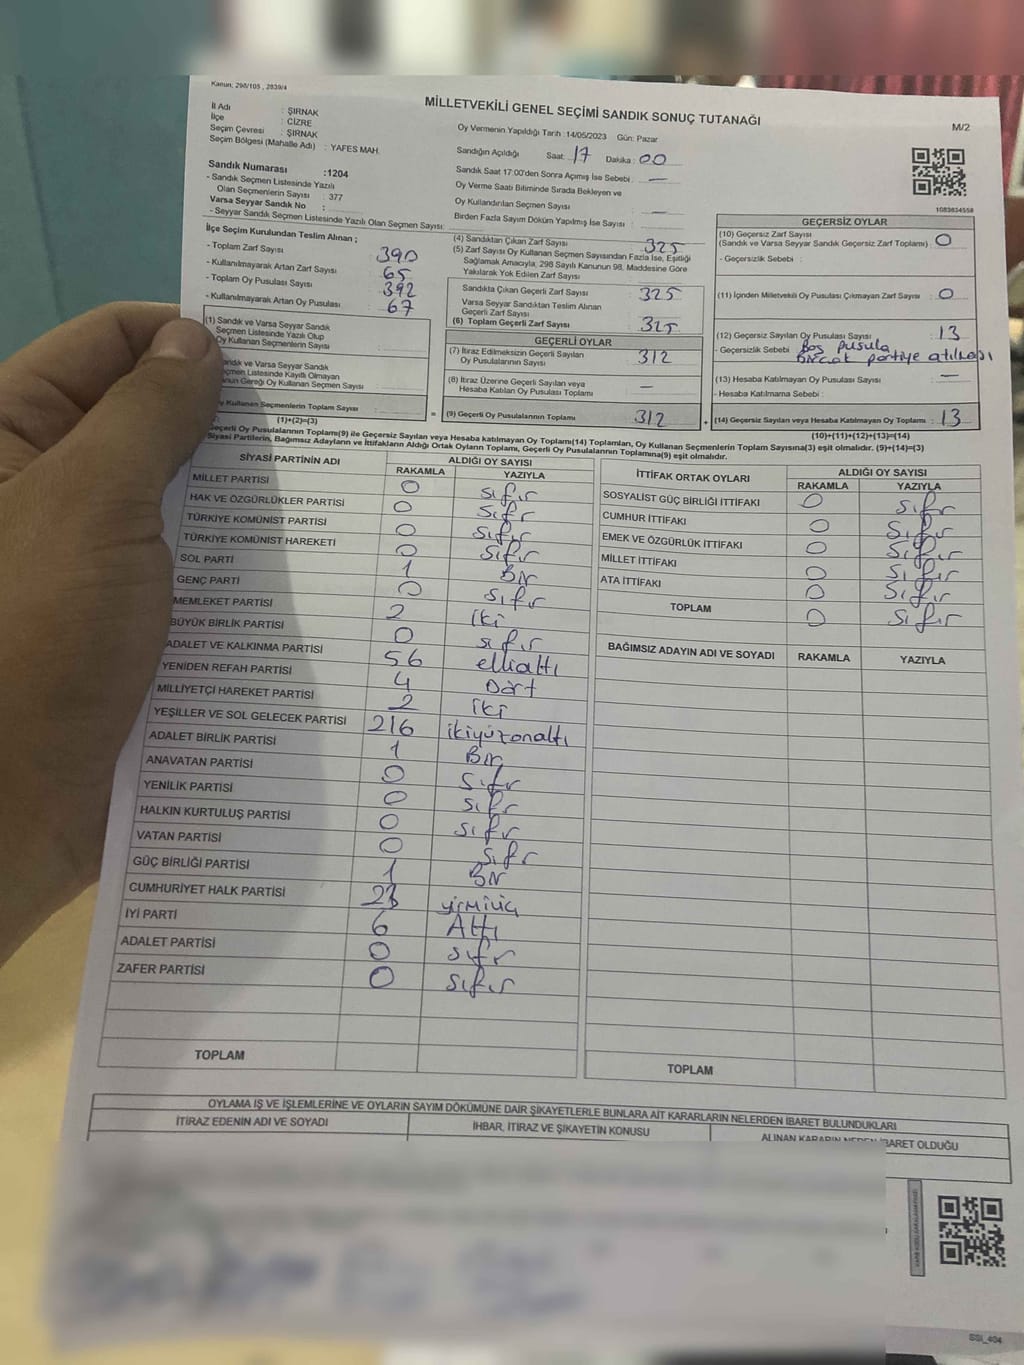 Kanun: 298/105 , 2839/4
MİLLETVEKİLİ GENEL SEÇİMİ SANDIK SONUÇ TUTANAĞI
M/2
İl Adı : ŞIRNAK
İlçe : CİZRE
Seçim Çevresi : ŞIRNAK
Seçim Bölgesi (Mahalle Adı) : YAFES MAH.
Sandık Numarası :1204
- Sandık Seçmen Listesinde Yazılı
Olan Seçmenlerin Sayısı : 377
Varsa Seyyar Sandık No :
- Seyyar Sandık Seçmen Listesinde Yazılı Olan Seçmen Sayısı:
Oy Vermenin Yapıldığı Tarih : 14/05/2023 Gün: Pazar
Sandığın Açıldığı Saat: 17 Dakika : 00
Sandık Saat 17:00'den Sonra Açımış İse Sebebi : —
Oy Verme Saati Bitiminde Sırada Bekleyen ve
Oy Kullandırılan Seçmen Sayısı : —
Birden Fazla Sayım Döküm Yapılmış İse Sayısı :
1083834558
İlçe Seçim Kurulundan Teslim Alınan ;
- Toplam Zarf Sayısı : 390
- Kullanılmayarak Artan Zarf Sayısı : 65
- Toplam Oy Pusulası Sayısı : 392
- Kullanılmayarak Artan Oy Pusulası : 67
(1) Sandık ve Varsa Seyyar Sandık
Seçmen Listesinde Yazılı Olup
Oy Kullanan Seçmenlerin Sayısı :
andık ve Varsa Seyyar Sandık
çmen Listesinde Kayıtlı Olmayan
anun Gereği Oy Kullanan Seçmen Sayısı :
y Kullanan Seçmenlerin Toplam Sayısı :
(1)+(2)=(3)
(4) Sandıktan Çıkan Zarf Sayısı : 325
(5) Zarf Sayısı Oy Kullanan Seçmen Sayısından Fazla İse, Eşitliği
Sağlamak Amacıyla; 298 Sayılı Kanunun 98. Maddesine Göre
Yakılarak Yok Edilen Zarf Sayısı :
Sandıkta Çıkan Geçerli Zarf Sayısı : 325
Varsa Seyyar Sandıktan Teslim Alınan
Geçerli Zarf Sayısı :
(6) Toplam Geçerli Zarf Sayısı : 325
GEÇERLİ OYLAR
(7) İtiraz Edilmeksizin Geçerli Sayılan
Oy Pusulalarının Sayısı : 312
(8) İtiraz Üzerine Geçerli Sayılan veya
Hesaba Katılan Oy Pusulası Toplamı : —
= (9) Geçerli Oy Pusulalarının Toplamı : 312
GEÇERSİZ OYLAR
(10) Geçersiz Zarf Sayısı
(Sandık ve Varsa Seyyar Sandık Geçersiz Zarf Toplamı) : 0
- Geçersizlik Sebebi :
(11) İçinden Milletvekili Oy Pusulası Çıkmayan Zarf Sayısı : 0
(12) Geçersiz Sayılan Oy Pusulası Sayısı : 13
- Geçersizlik Sebebi : Boş pusula
partiye
(13) Hesaba Katılmayan Oy Pusulası Sayısı : —
- Hesaba Katılmama Sebebi :
+ (14) Geçersiz Sayılan veya Hesaba Katılmayan Oy Toplamı : 13
(10)+(11)+(12)+(13)=(14)
Geçerli Oy Pusulalarının Toplamı(9) ile Geçersiz Sayılan veya Hesaba katılmayan Oy Toplamı(14) Toplamları, Oy Kullanan Seçmenlerin Toplam Sayısına(3) eşit olmalıdır. (9)+(14)=(3)
Siyasi Partilerin, Bağımsız Adayların ve İttifakların Aldığı Ortak Oyların Toplamı, Geçerli Oy Pusulalarının Toplamına(9) eşit olmalıdır.
SİYASİ PARTİNİN ADI ALDIĞI OY SAYISI
RAKAMLA YAZIYLA
MİLLET PARTİSİ 0 sıfır
HAK VE ÖZGÜRLÜKLER PARTİSİ 0 sıfır
TÜRKİYE KOMÜNİST PARTİSİ 0 sıfır
TÜRKİYE KOMÜNİST HAREKETİ 0 sıfır
SOL PARTİ 1 Bir
GENÇ PARTİ 0 sıfır
MEMLEKET PARTİSİ 2 iki
BÜYÜK BİRLİK PARTİSİ 0 sıfır
ADALET VE KALKINMA PARTİSİ 56 elliAltı
YENİDEN REFAH PARTİSİ 4 Dört
MİLLİYETÇİ HAREKET PARTİSİ 2 iki
YEŞİLLER VE SOL GELECEK PARTİSİ 216 ikiyüzonaltı
ADALET BİRLİK PARTİSİ 1 Bir
ANAVATAN PARTİSİ 0 sıfır
YENİLİK PARTİSİ 0 sıfır
HALKIN KURTULUŞ PARTİSİ 0 sıfır
VATAN PARTİSİ 0 sıfır
GÜÇ BİRLİĞİ PARTİSİ 1 Bir
CUMHURİYET HALK PARTİSİ 23 yirmiüç
İYİ PARTİ 6 Altı
ADALET PARTİSİ 0 sıfır
ZAFER PARTİSİ 0 sıfır
TOPLAM
İTTİFAK ORTAK OYLARI ALDIĞI OY SAYISI
RAKAMLA YAZIYLA
SOSYALİST GÜÇ BİRLİĞİ İTTİFAKI 0 sıfır
CUMHUR İTTİFAKI 0 sıfır
EMEK VE ÖZGÜRLÜK İTTİFAKI 0 sıfır
MİLLET İTTİFAKI 0 sıfır
ATA İTTİFAKI 0 sıfır
TOPLAM 0 sıfır
BAĞIMSIZ ADAYIN ADI VE SOYADI RAKAMLA YAZIYLA
TOPLAM
OYLAMA İŞ VE İŞLEMLERİNE VE OYLARIN SAYIM DÖKÜMÜNE DAİR ŞİKAYETLERLE BUNLARA AİT KARARLARIN NELERDEN İBARET BULUNDUKLARI
İTİRAZ EDENİN ADI VE SOYADI İHBAR, İTİRAZ VE ŞİKAYETİN KONUSU ALINAN KARARIN NEDEN İBARET OLDUĞU
SSI_404